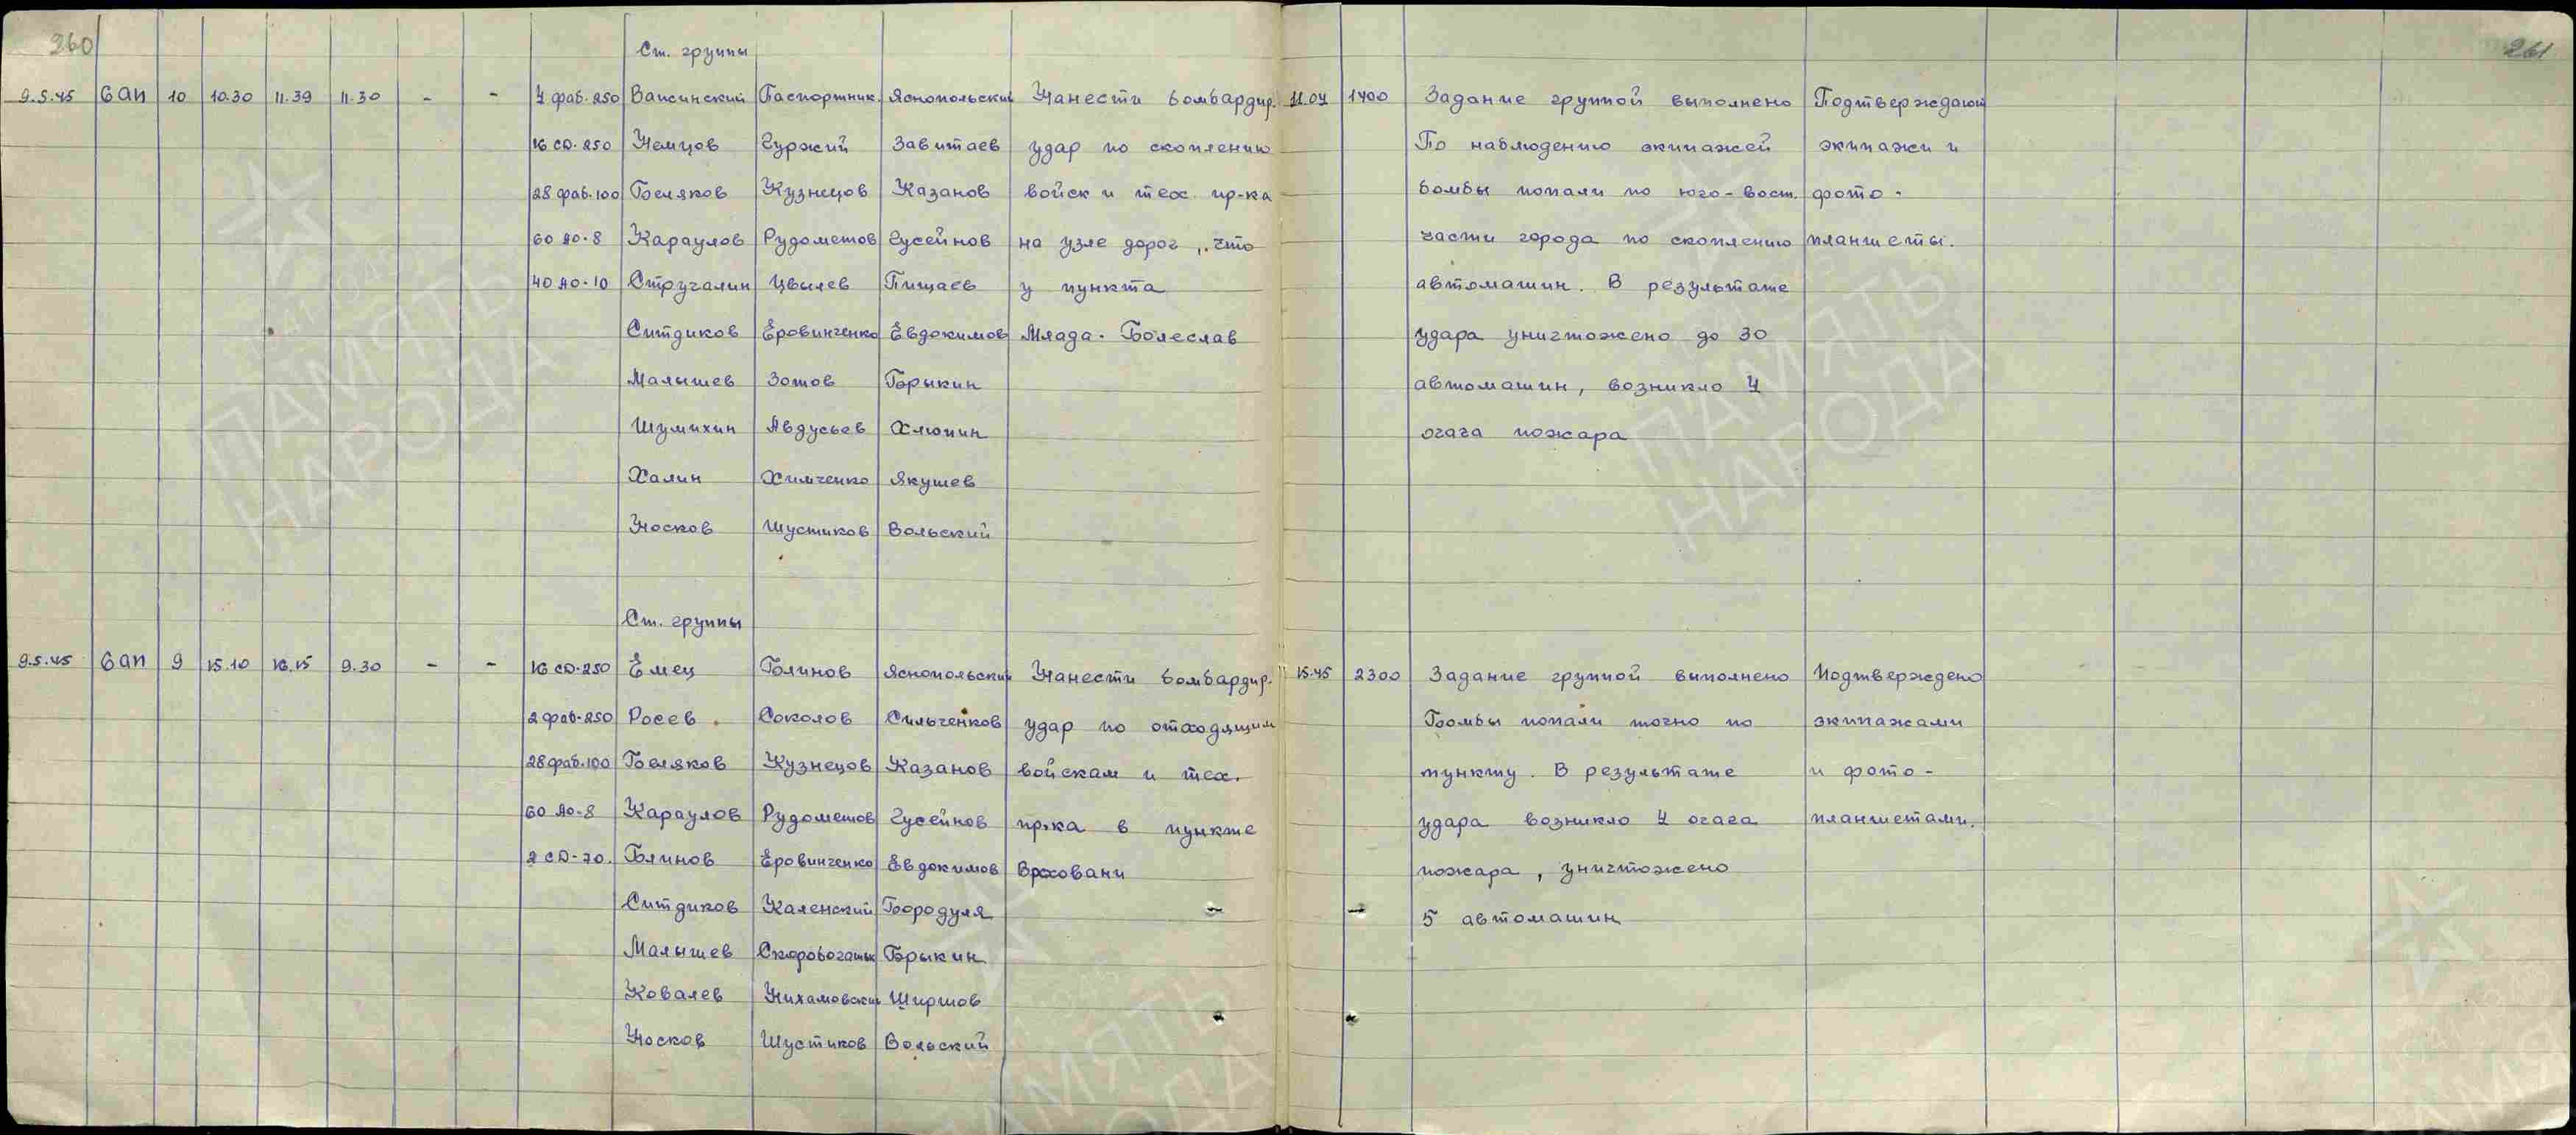 260
261
Ст. группы
9.5.45 6 ап 10 10.30 11.39 11.30 - - 4 фаб.250 Ваксинский Паспортник. Яснопольский Нанести бомбардир. 11.07 1400 Задание группой выполнено Подтверждают
16 СД-250 Немцов Гуржий Завитаев удар по скоплению По наблюдению экипажей экипажи и
28 фаб.100 Беляков Кузнецов Казанов войск и тех. пр-ка бомбы попали по юго-вост. фото-
60 АО-8 Караулов Рудометов Гусейнов на узле дорог, что части города по скоплению планшеты.
40 АО-10 Стругалин Цвылев Пищаев у пункта автомашин. В результате
Ситдиков Еровинченко Евдокимов Млада-Болеслав удара уничтожено до 30
Малышев Зотов Брыкин автомашин, возникло 4
Шумихин Авдусьев Хлюпин очага пожара
Халин Химченко Якушев
Носков Шустиков Вольский
Ст. группы
9.5.45 6 ап 9 15.10 16.15 9.30 - - 16 СД-250 Емец Блинов Яснопольский Нанести бомбардир. 15.45 2300 Задание группой выполнено Подтверждено
2 фаб-250 Росев Соколов Сильченков удар по отходящим Бомбы попали точно по экипажами
28 фаб.100 Беляков Кузнецов Казанов войскам и тех. пункту. В результате и фото-
60 АО-8 Караулов Рудометов Гусейнов пр-ка в пункте удара возникло 4 очага планшетами.
2 СД-70. Блинов Еровинченко Евдокимов Врховани пожара, уничтожено
Ситдиков Каленский Бородуля 5 автомашин
Малышев Скоробогатык Брыкин
Ковалев Ширшов
Носков Шустиков Вольский
ПАМЯТЬ
НАРОДА
ПАМЯТЬ
НАРОДА